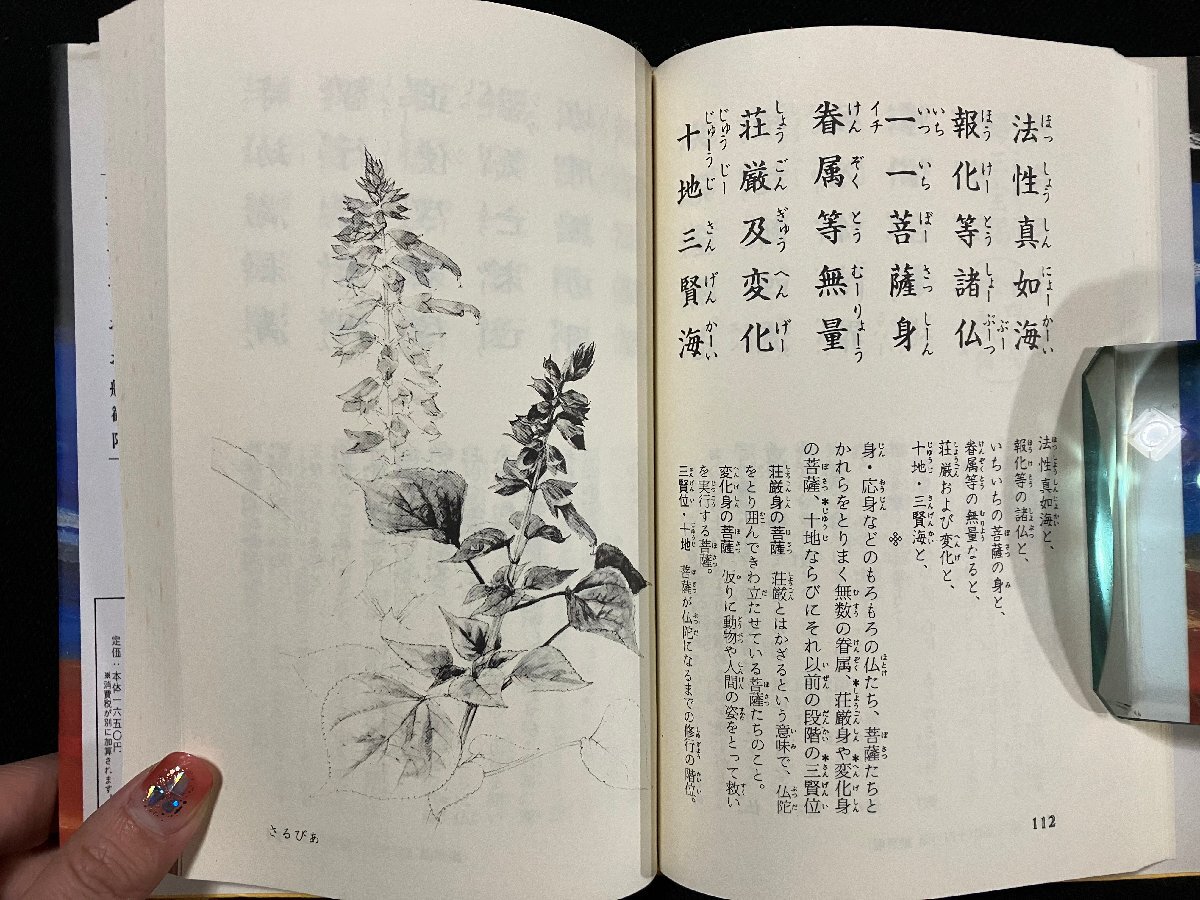 法性真如海
報化等諸仏
一一菩薩身
眷属等無量
荘厳及変化
十地三賢海
法性真如海と、
報化等の諸仏と、
いちいちの菩薩の身と、
眷属等の無量なると、
荘厳および変化と、
十地・三賢海と、
身・応身などのもろもろの仏たち、菩薩たちと
かれらをとりまく無数の眷属、*荘厳身や*変化身
の菩薩、*十地ならびにそれ以前の段階の*三賢位
荘厳身の菩薩 荘厳とはかざるという意味で、仏陀
をとり囲んできわ立たせている菩薩たちのこと。
変化身の菩薩 仮りに動物や人間の姿をとって救い
を実行する菩薩。
三賢位・十地 菩薩が仏陀になるまでの修行の階位。
112
さるびあ
定価：本体一六五〇円
※消費税が別に加算されます。